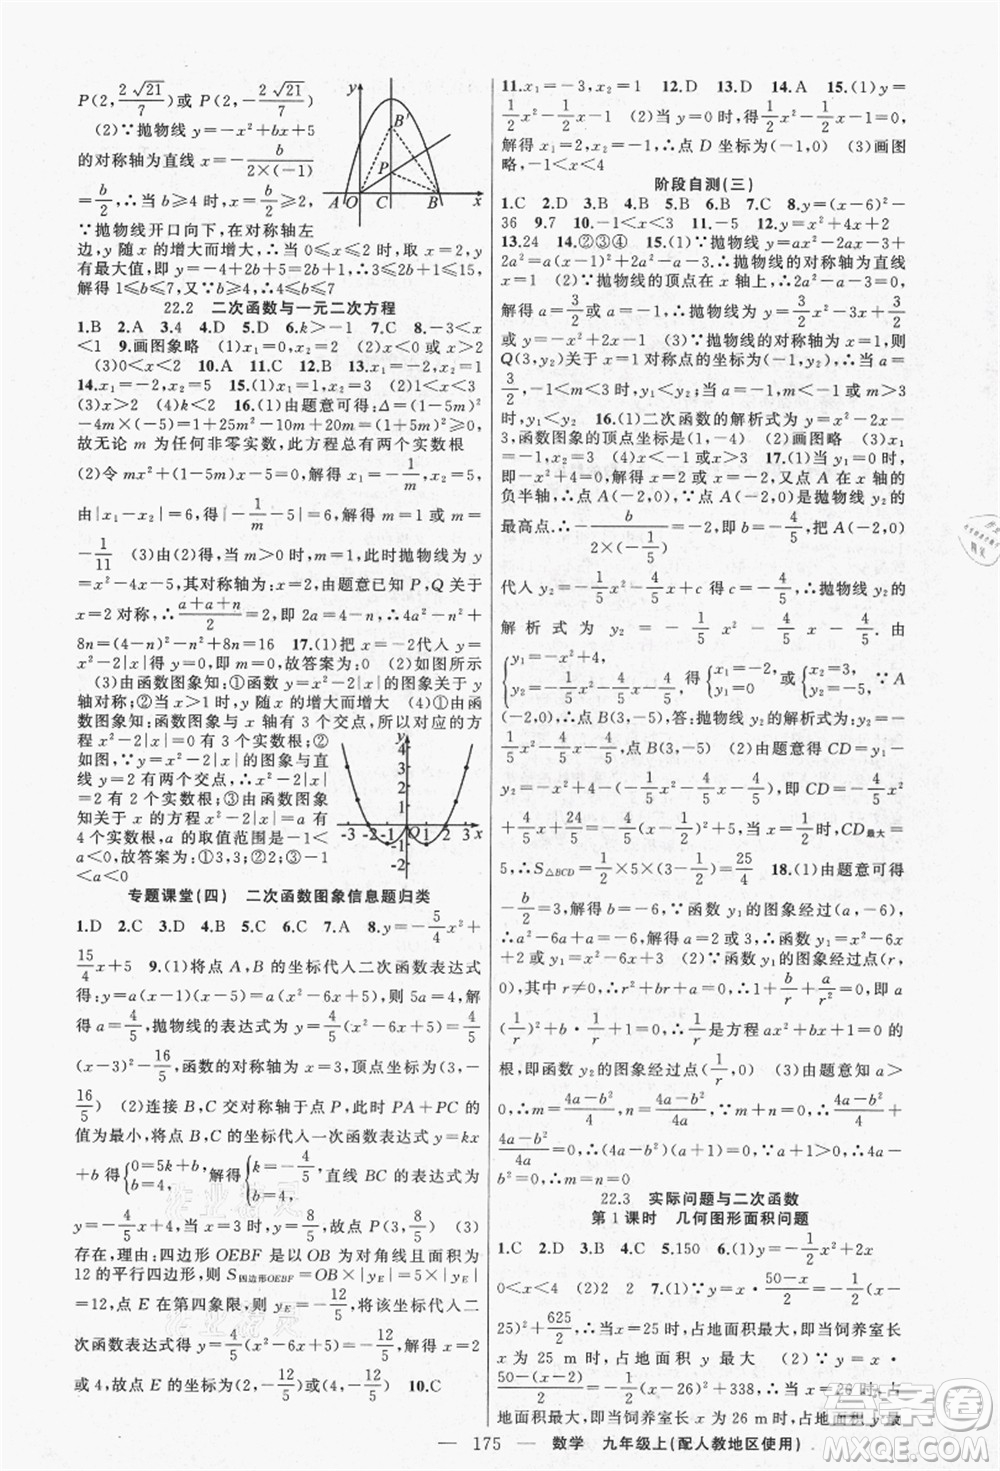 P(2, 2√21/7)或 P(2, −2√21/7)
(2)∵抛物线 y=−x²+bx+5
的对称轴为直线 x=−b/(2×(−1))
=b/2,∴当 b≥4 时,b/2≥2,
∵抛物线开口向下,在对称轴左
边,y 随 x 的增大而增大,∴当 0≤x≤2 时,取 x=2,y
22.2 二次函数与一元二次方程
1.B 2.A 3.4 4.D 5.D 6.k>−1 7.C 8.−3<x
<1 9.画图象略 (1)x₁=0,x₂=2 (2)x<0 或 x>2
(3)0<x<2 10.A 11.C 12.B 13.x₁=−4,x₂=0
(3)x>2 (4)k<2 16.(1)由题意可得:Δ=(1−5m)²
−4m×(−5)=1+25m²−10m+20m=(1+5m)²≥0,
故无论 m 为任何非零实数,此方程总有两个实数根
(2)令 mx²+(1−5m)x−5=0,解得 x₁=−1/m,x₂=5,
由|x₁−x₂|=6,得|−1/m−5|=6,解得 m=1 或 m=
−1/11 (3)由(2)得,当 m>0 时,m=1,此时抛物线为 y
=x²−4x−5,其对称轴为:x=2,由题意已知 P,Q 关于
x=2 对称,∴(a+a+n)/2=2,即 2a=4−n,∴4a²−n²+
8n=(4−n)²−n²+8n=16 17.(1)把 x=−2代入 y=
x²−2|x|得 y=0,故答案为:0 (2)如图所示
(3)由函数图象知:①函数 y=x²−2|x|的图象关于 y
轴对称;②当 x>1 时,y 随 x 的增大而增大 (4)①由函
数图象知:函数图象与 x 轴有 3 个交点,所以对应的方
程 x²−2|x|=0 有 3 个实数根;②
如图,∵y=x²−2|x|的图象与直
线 y=2 有两个交点,∴x²−2|x|=
2有 2 个实数根;③由函数图象
知关于 x 的方程 x²−2|x|=a 有
4 个实数根,∴a 的取值范围是−1<
a<0,故答案为:3,3,2,−1<
a<0
专题课堂(四) 二次函数图象信息题归类
1.D 2.A 3.D 4.B 5.C 6.C 7.A 8.y=−5/4x²+
15/4x+5 9.(1)将点 A,B 的坐标代入二次函数表达式
得:y=a(x−1)(x−5)=a(x²−6x+5),则 5a=4,解
得 a=4/5,抛物线的表达式为 y=4/5(x²−6x+5)=4/5
(x−3)²−16/5,函数的对称轴为 x=3,顶点坐标为(3,−
16/5) (2)连接 B,C 交对称轴于点 P,此时 PA+PC 的
值为最小,将点 B,C 的坐标代入一次函数表达式 y=kx
+b得{0=5k+b, b=4, 解得{k=−4/5, b=4, 直线 BC 的表达式为
y=−4/5x+4,当 x=3 时,y=8/5,故点 P(3,8/5) (3)
存在,理由:四边形 OEBF 是以 OB 为对角线且面积为
12 的平行四边形,则 S四边形OEBF=OB×|yE|=5×|yE|
=12,点 E 在第四象限,则 yE=−12/5,将该坐标代入二
次函数表达式得 y=4/5(x²−6x+5)=−12/5,解得 x=2
或 4,故点 E 的坐标为(2,−12/5)或(4,−12/5) 10.C
11.x₁=−3,x₂=0 12.D 13.D 14.A 15.(1)y=
1/2x²−1/2x−1 (2)当 y=0 时,得 1/2x²−1/2x−1=0,
解得 x₁=2,x₂=−1,∴点 D 坐标为(−1,0) (3)画图
略,−1<x<4
阶段自测(三)
1.C 2.D 3.B 4.B 5.B 6.C 7.C 8.y=(x−6)²−
36 9.7 10.−1<x<3 11.−5 12.y=x²+4x+2
13.24 14.②③④ 15.(1)∵抛物线 y=ax²−2ax−3+
2a²=a(x−1)²−a−3+2a²,∴抛物线的对称轴为直线
x=1 (2)∵抛物线的顶点在 x 轴上,∴2a²−a−3=0,
解得 a=3/2或 a=−1,∴抛物线为 y=3/2x²−3x+3/2
或 y=−x²+2x−1 (3)∵抛物线的对称轴为 x=1,则
Q(3,y₂)关于 x=1 对称点的坐标为(−1,y₂),∴当 a=
3/2,−1<m<3 时,y₁<y₂;当 a=−1,m<−1 或 m>3
时,y₁<y₂ 16.(1)二次函数的解析式为 y=x²−2x−
3,函数图象的顶点坐标是(1,−4) (2)画图略 (3)x₁
=0,x₂=2 (4)x>2 17.(1)当 y₁=0 时,即−x²+4=
0,解得 x=2 或 x=−2,又点 A 在 x 轴的
负半轴,∴点 A(−2,0),∵点 A(−2,0)是抛物线 y₂ 的
最高点,∴−b/(2×(−1/5))=−2,即 b=−4/5,把 A(−2,0)
代入 y₂=−1/5x²−4/5x+c 得,c=−4/5,∴抛物线 y₂的
解析式为 y₂=−1/5x²−4/5x−4/5.由
{y=−x²+4, y=−1/5x²−4/5x−4/5 得{x₁=−2, y₁=0, {x₂=3, y₂=−5, ∵A
(−2,0),∴点 B(3,−5),答:抛物线 y₂的解析式为:y₂=
−1/5x²−4/5x−4/5,点 B(3,−5) (2)由题意得 CD=y₁
−y₂=−x²+4−(−1/5x²−4/5x−4/5),即:CD=−4/5x²
+4/5x+24/5,当 x=−4/5/(2×(−4/5))=1/2时,CD最大=
5,∴S△BCD=1/2×5×(3−1/2)=25/4 18.(1)由题意可得
−b/2=3,∴b=−6,∵函数 y₁ 的图象经过(a,−6),
∴a²−6a+a=−6,∴a=2 或 3,∴函数 y₁=x²−6x
+2 或 y₁=x²−6x+3 (2)∵函数 y₁的图象经过点
(r,0),其中 r≠0,∴r²+br+a=0,∴1+b/r+a/r²=0,即 a
(1/r)²+b·(1/r)+1=0,∴1/r是方程 ax²+bx+1=0 的
根,即函数 y₂的图象经过点(1/r,0) (3)由题意 a>
0,∴m=(4a−b²)/4,n=(4a−b²)/4a,∵m+n=0,∴(4a−b²)/4+
(4a−b²)/4a=0,∴(4a−b²)(a+1)=0,∵a+1>0,∴4a−
b²=0,∴m=n=0
22.3 实际问题与二次函数
第 1 课时 几何图形面积问题
1.C 2.D 3.D 4.C 5.150 6.(1)y=−1/2x²+2x
0<x<4 (2)2 2 7.(1)∵y=x·(50−x)/2=−1/2(x−
25)²+625/2,∴当 x=25 时,占地面积最大,即当饲养室长
x 为 25 m 时,占地面积 y 最大 (2)∵y=x·
(50−(x−2))/2=−1/2(x−26)²+338,∴当 x=26 时,占
地面积最大,即当饲养室长 x 为 26 m 时,占地面积 y 最
— 175 — 数学 九年级上(配人教地区使用)